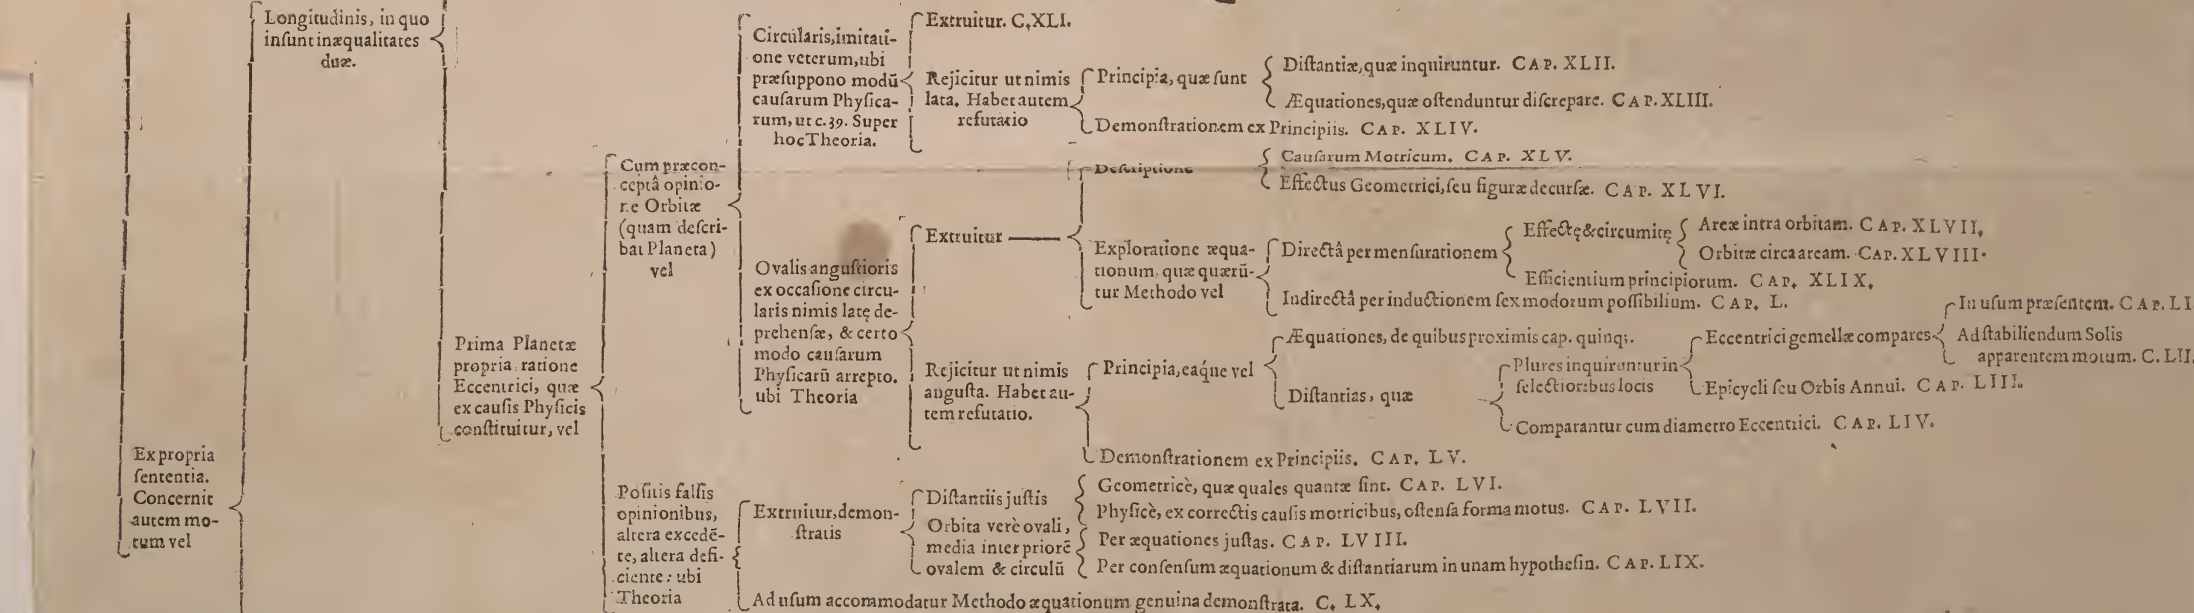 Longitudinis, in quo
inſunt inæqualitates
duæ.
Ex propria
ſententia.
Concernit
autem mo-
tum vel
Prima Planetæ
propria ratione
Eccentrici, quæ
ex cauſis Phyſicis
conſtituitur, vel
Cum præcon-
ceptâ opinio-
ne Orbitæ
(quam deſcri-
bat Planeta)
vel
Circularis, imitati-
one veterum, ubi
præſuppono modũ
cauſarum Phyſica-
rum, ut c. 39. Super
hoc Theoria.
Extruitur. C. XLI.
Rejicitur ut nimis
lata. Habet autem
refutatio
Principia, quæ ſunt
Diſtantiæ, quæ inquiruntur. CAP. XLII.
Æquationes, quæ oſtenduntur diſcrepare. CAP. XLIII.
Demonſtrationem ex Principiis. CAP. XLIV.
Ovalis anguſtioris
ex occaſione circu-
laris nimis latę de-
prehenſæ, & certo
modo cauſarum
Phyſicarũ arrepto.
ubi Theoria
Extruitur
Deſcriptione
Cauſarum Motricum. CAP. XLV.
Effectus Geometrici, ſeu figuræ decurſæ. CAP. XLVI.
Exploratione æqua-
tionum, quæ quærũ-
tur Methodo vel
Directâ per menſurationem
Effectę & circumitę
Areæ intra orbitam. CAP. XLVII.
Orbitæ circa aream. CAP. XLVIII.
Efficientium principiorum. CAP. XLIX.
Indirectâ per inductionem ſex modorum poſſibilium. CAP. L.
Rejicitur ut nimis
anguſta. Habet au-
tem refutatio.
Principia, eaq́ue vel
Æquationes, de quibus proximis cap. quinq;.
Diſtantias, quæ
Plures inquiruntur in
ſelectioribus locis
Eccentrici gemellæ compares
In uſum præſentem. CAP. LI
Ad ſtabiliendum Solis
apparentem motum. C. LII.
Epicycli ſeu Orbis Annui. CAP. LIII.
Comparantur cum diametro Eccentrici. CAP. LIV.
Demonſtrationem ex Principiis. CAP. LV.
Poſitis falſis
opinionibus,
altera excedẽ-
te, altera defi-
ciente: ubi
Theoria
Extruitur, demon-
ſtratis
Diſtantiis juſtis
Geometricè, quæ quales quantæ ſint. CAP. LVI.
Phyſicè, ex correctis cauſis motricibus, oſtenſa forma motus. CAP. LVII.
Orbita verè ovali,
media inter priorẽ
ovalem & circulũ
Per æquationes juſtas. CAP. LVIII.
Per conſenſum æquationum & diſtantiarum in unam hypotheſin. CAP. LIX.
Ad uſum accommodatur Methodo æquationum genuina demonſtrata. C. LX.